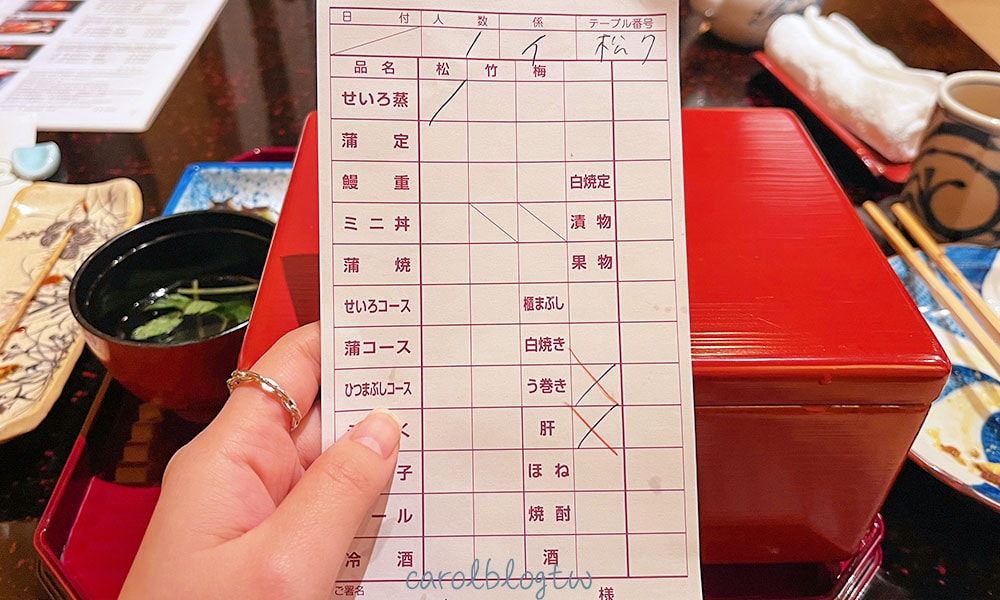 日付 人数 係 テーブル番号
イ 松ク
品名 松 竹 梅
せいろ蒸
蒲定
鰻重 白焼定
ミニ丼 漬物
蒲焼 果物
せいろコース 櫃まぶし
蒲コース 白焼き
ひつまぶしコース う巻き
肝
子 ほね
ール 焼酎
冷酒 酒
ご署名 様
carolblogtw